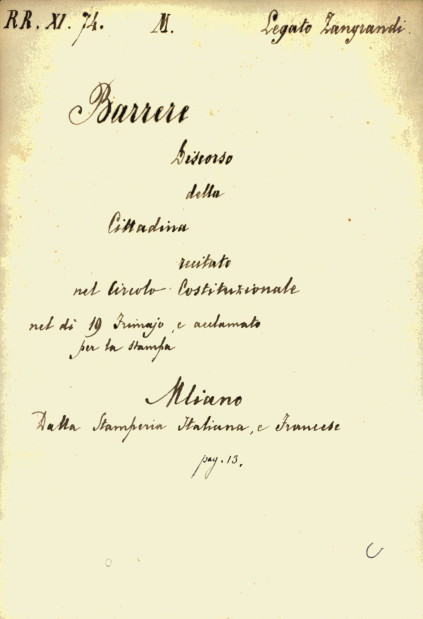 RR. XI. 74. M. Legato Zangrandi.
Barrere
Discorso
della
Cittadina
recitato
nel Circolo Costituzionale
nel dì 19 Frimajo, e acclamato
per la stampa
Mliano
Dalla Stamperia Italiana, e Francese
pag. 13.